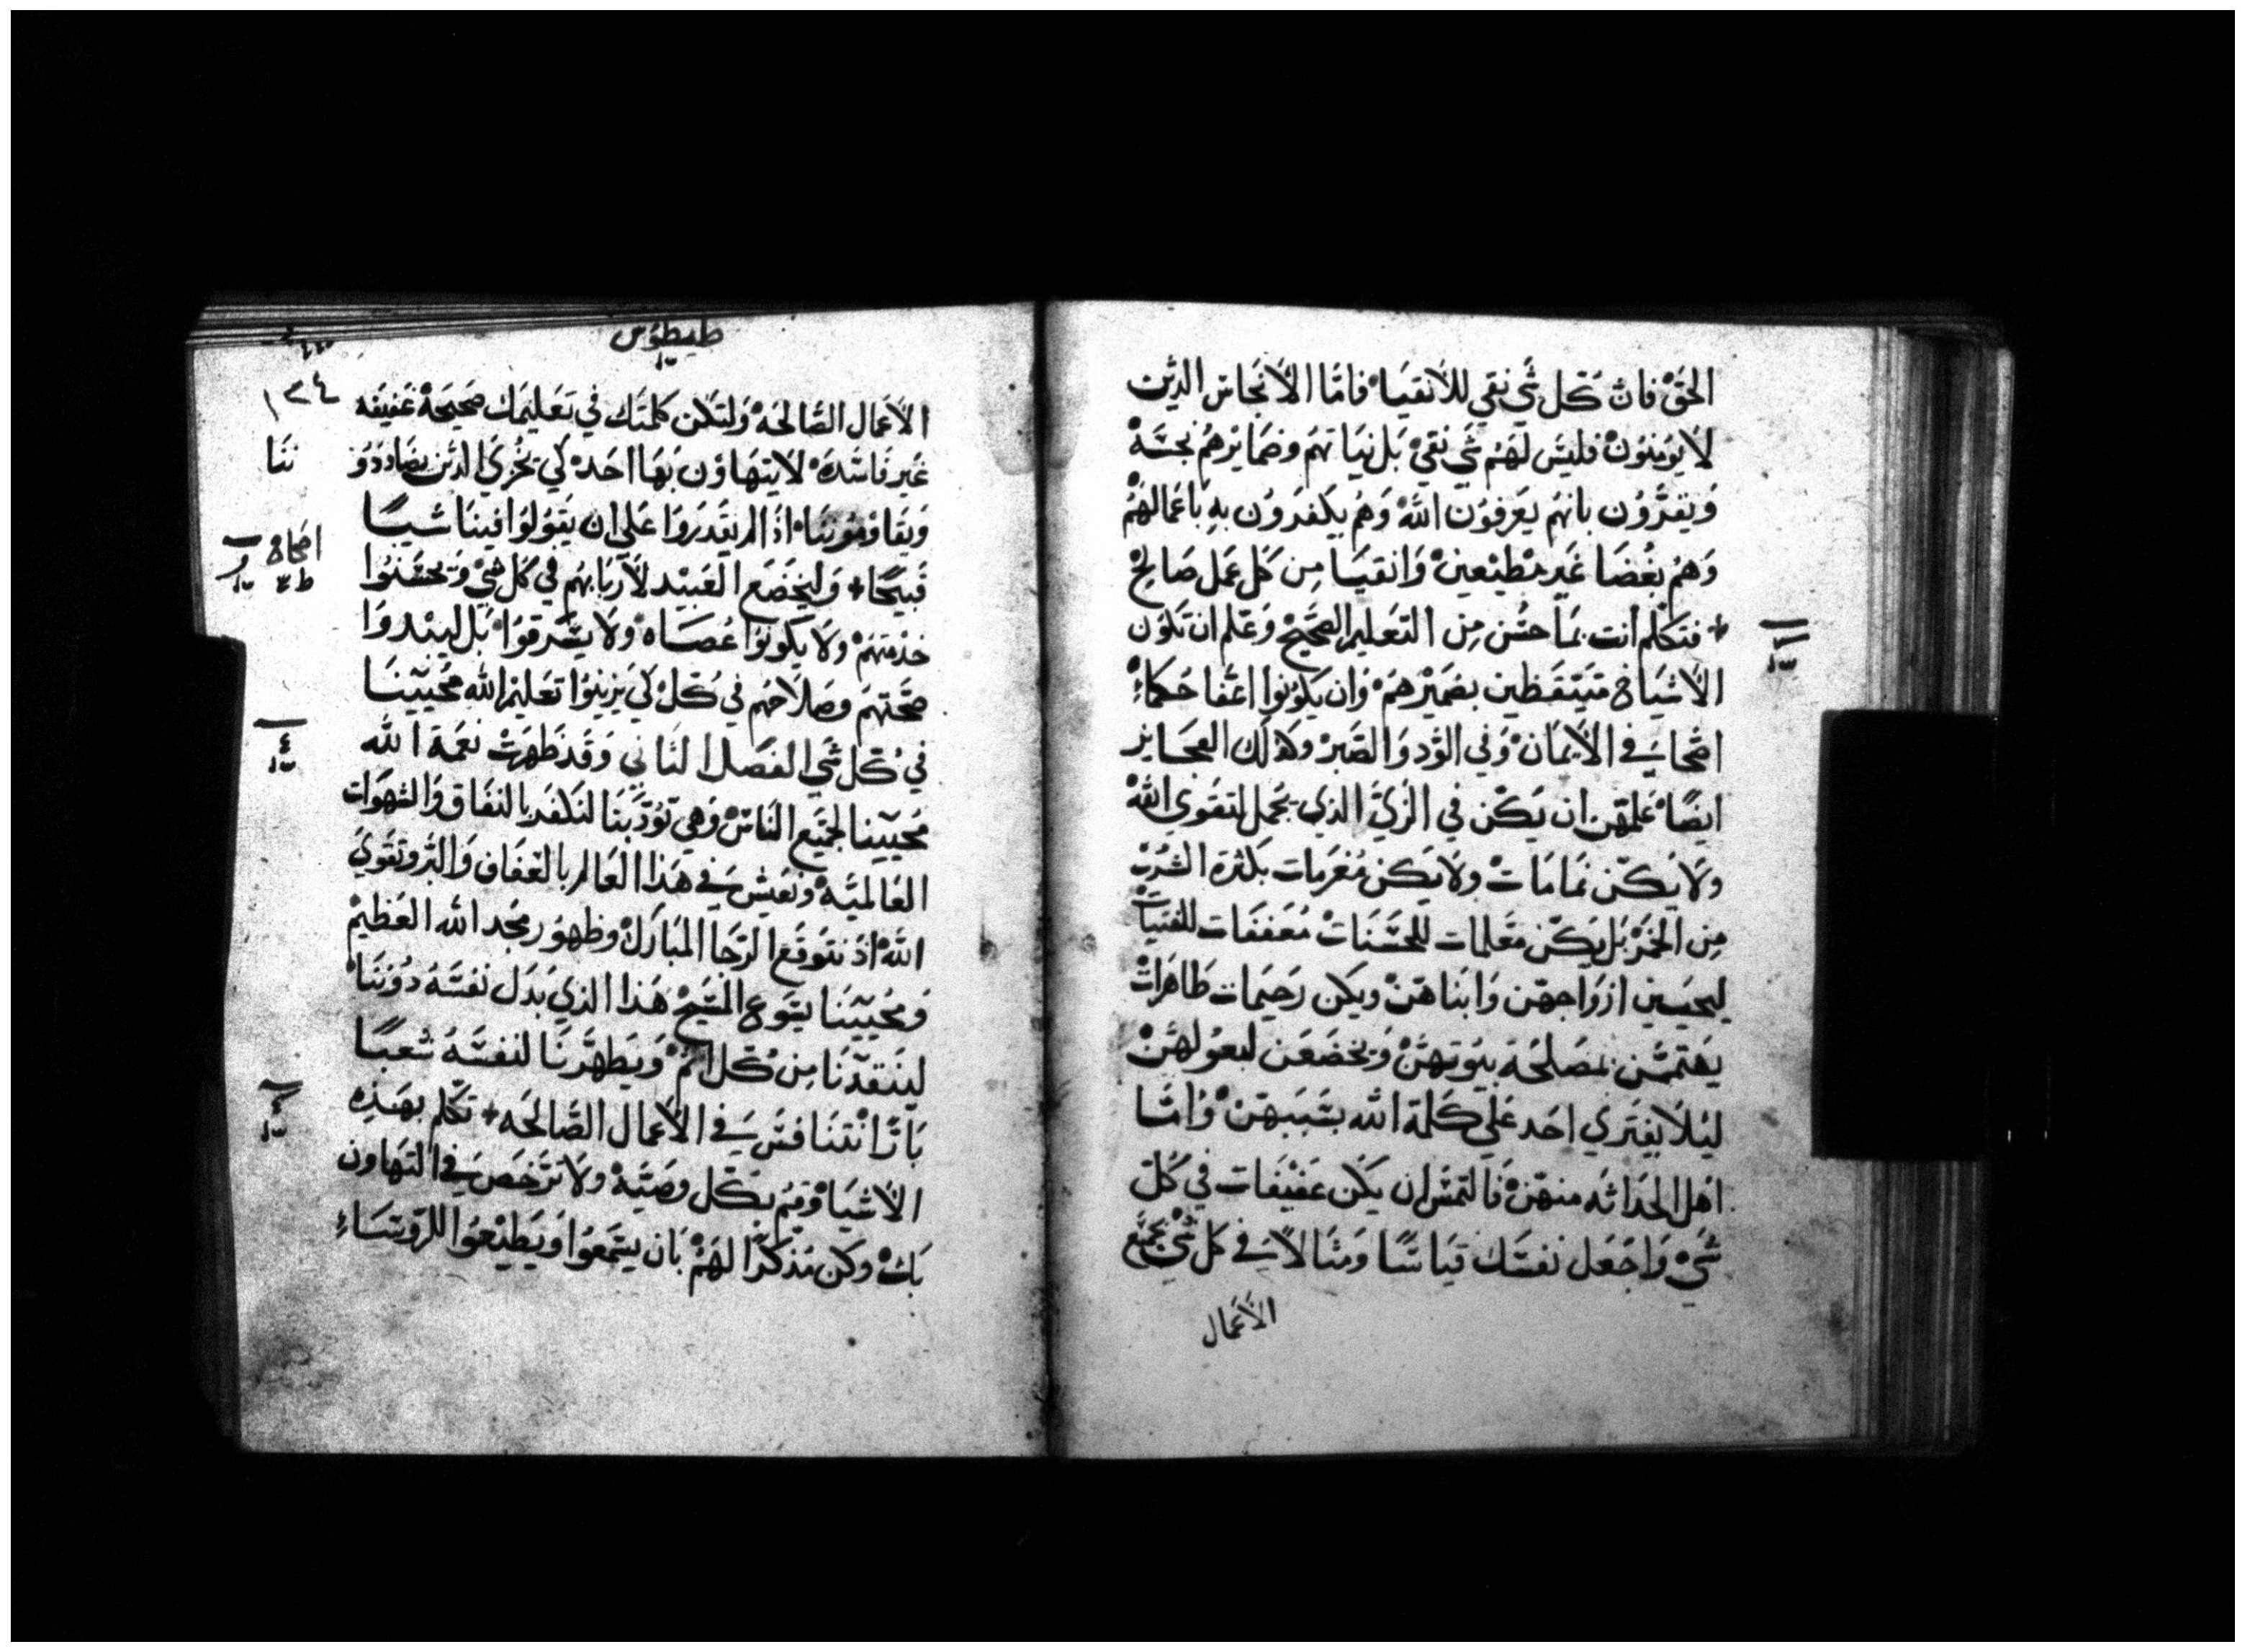 الحَق فان كل شي نقي للانقيا فاما الانجاس الذين
لا يومنون فليس لهم شي نقي بل نياتهم وضمايرهم نجسة
ويقرون بانهم يعرفون الله وهم يكفرون به باعمالهم
وهم بغضا غير مطيعين وانقيا من كل عمل صالح
فتكلم انت بما حسن من التعليم الصحيح وعلم ان تكون
الاشياخ متيقظين بضميرهم وان يكونوا اعفا حكماء
اصحا في الايمان وفي الود والصبر وكذلك العجايز
ايضا علمهن ان يكن في الزي الذي يجمل لتقوي الله
ولا يكن نمامات ولا يكن مغرمات بكثرة الشرب
من الخمر بل يكن معلمات للحسنات معففات للفتيات
ليحبين ازواجهن وابناهن ويكن رحيمات طاهرات
يهتممن بمصلحة بيوتهن ويخضعن لبعولهن
ليلا يفتري احد علي كلمة الله بسببهن واما
اهل الحداثه منهن فالتمس ان يكن عفيفات في كل
شي واجعل نفسك قياسا ومثالا في كل شي بجميع
الاعمال
طيطوس
١٣٤
الاعمال الصالحه ولتكن كلمتك في تعليمك صحيحة عفيفه
غير فاسده لا يتهاون بها احد لكي يخزي الذين يضاددو
ننا
ويقاومونا اذا لم يقدروا علي ان يقولوا فينا شيا
قبيحا وليخضع العبيد لاربابهم في كل شي ويحسنوا
اصحاح
خدمتهم ولا يكونوا عصاه ولا يسرقوا بل ليبدوا
صحتهم وصلاحهم في كل لكي يزينوا تعليم الله محيينا
في كل شي الفصل الثاني وقد ظهرت نعمة الله
محيينا لجميع الناس وهي تودبنا لنكفر بالنفاق والشهوات
العالمية ونعيش في هذا العالم بالعفاف والبر وتقوي
الله اذ نتوقع الرجا المبارك وظهور مجد الله العظيم
ومحيينا يسوع المسيح هذا الذي بدل نفسه دوننا
لينقدنا من كل اثم ويطهرنا لنفسه شعبا
بارا نتنافس في الاعمال الصالحه تكلم بهذه
الاشيا وقم بكل وصية ولا ترخص في التهاون
بك وكن مذكرا لهم بان يستمعوا ويطيعوا للرويساء